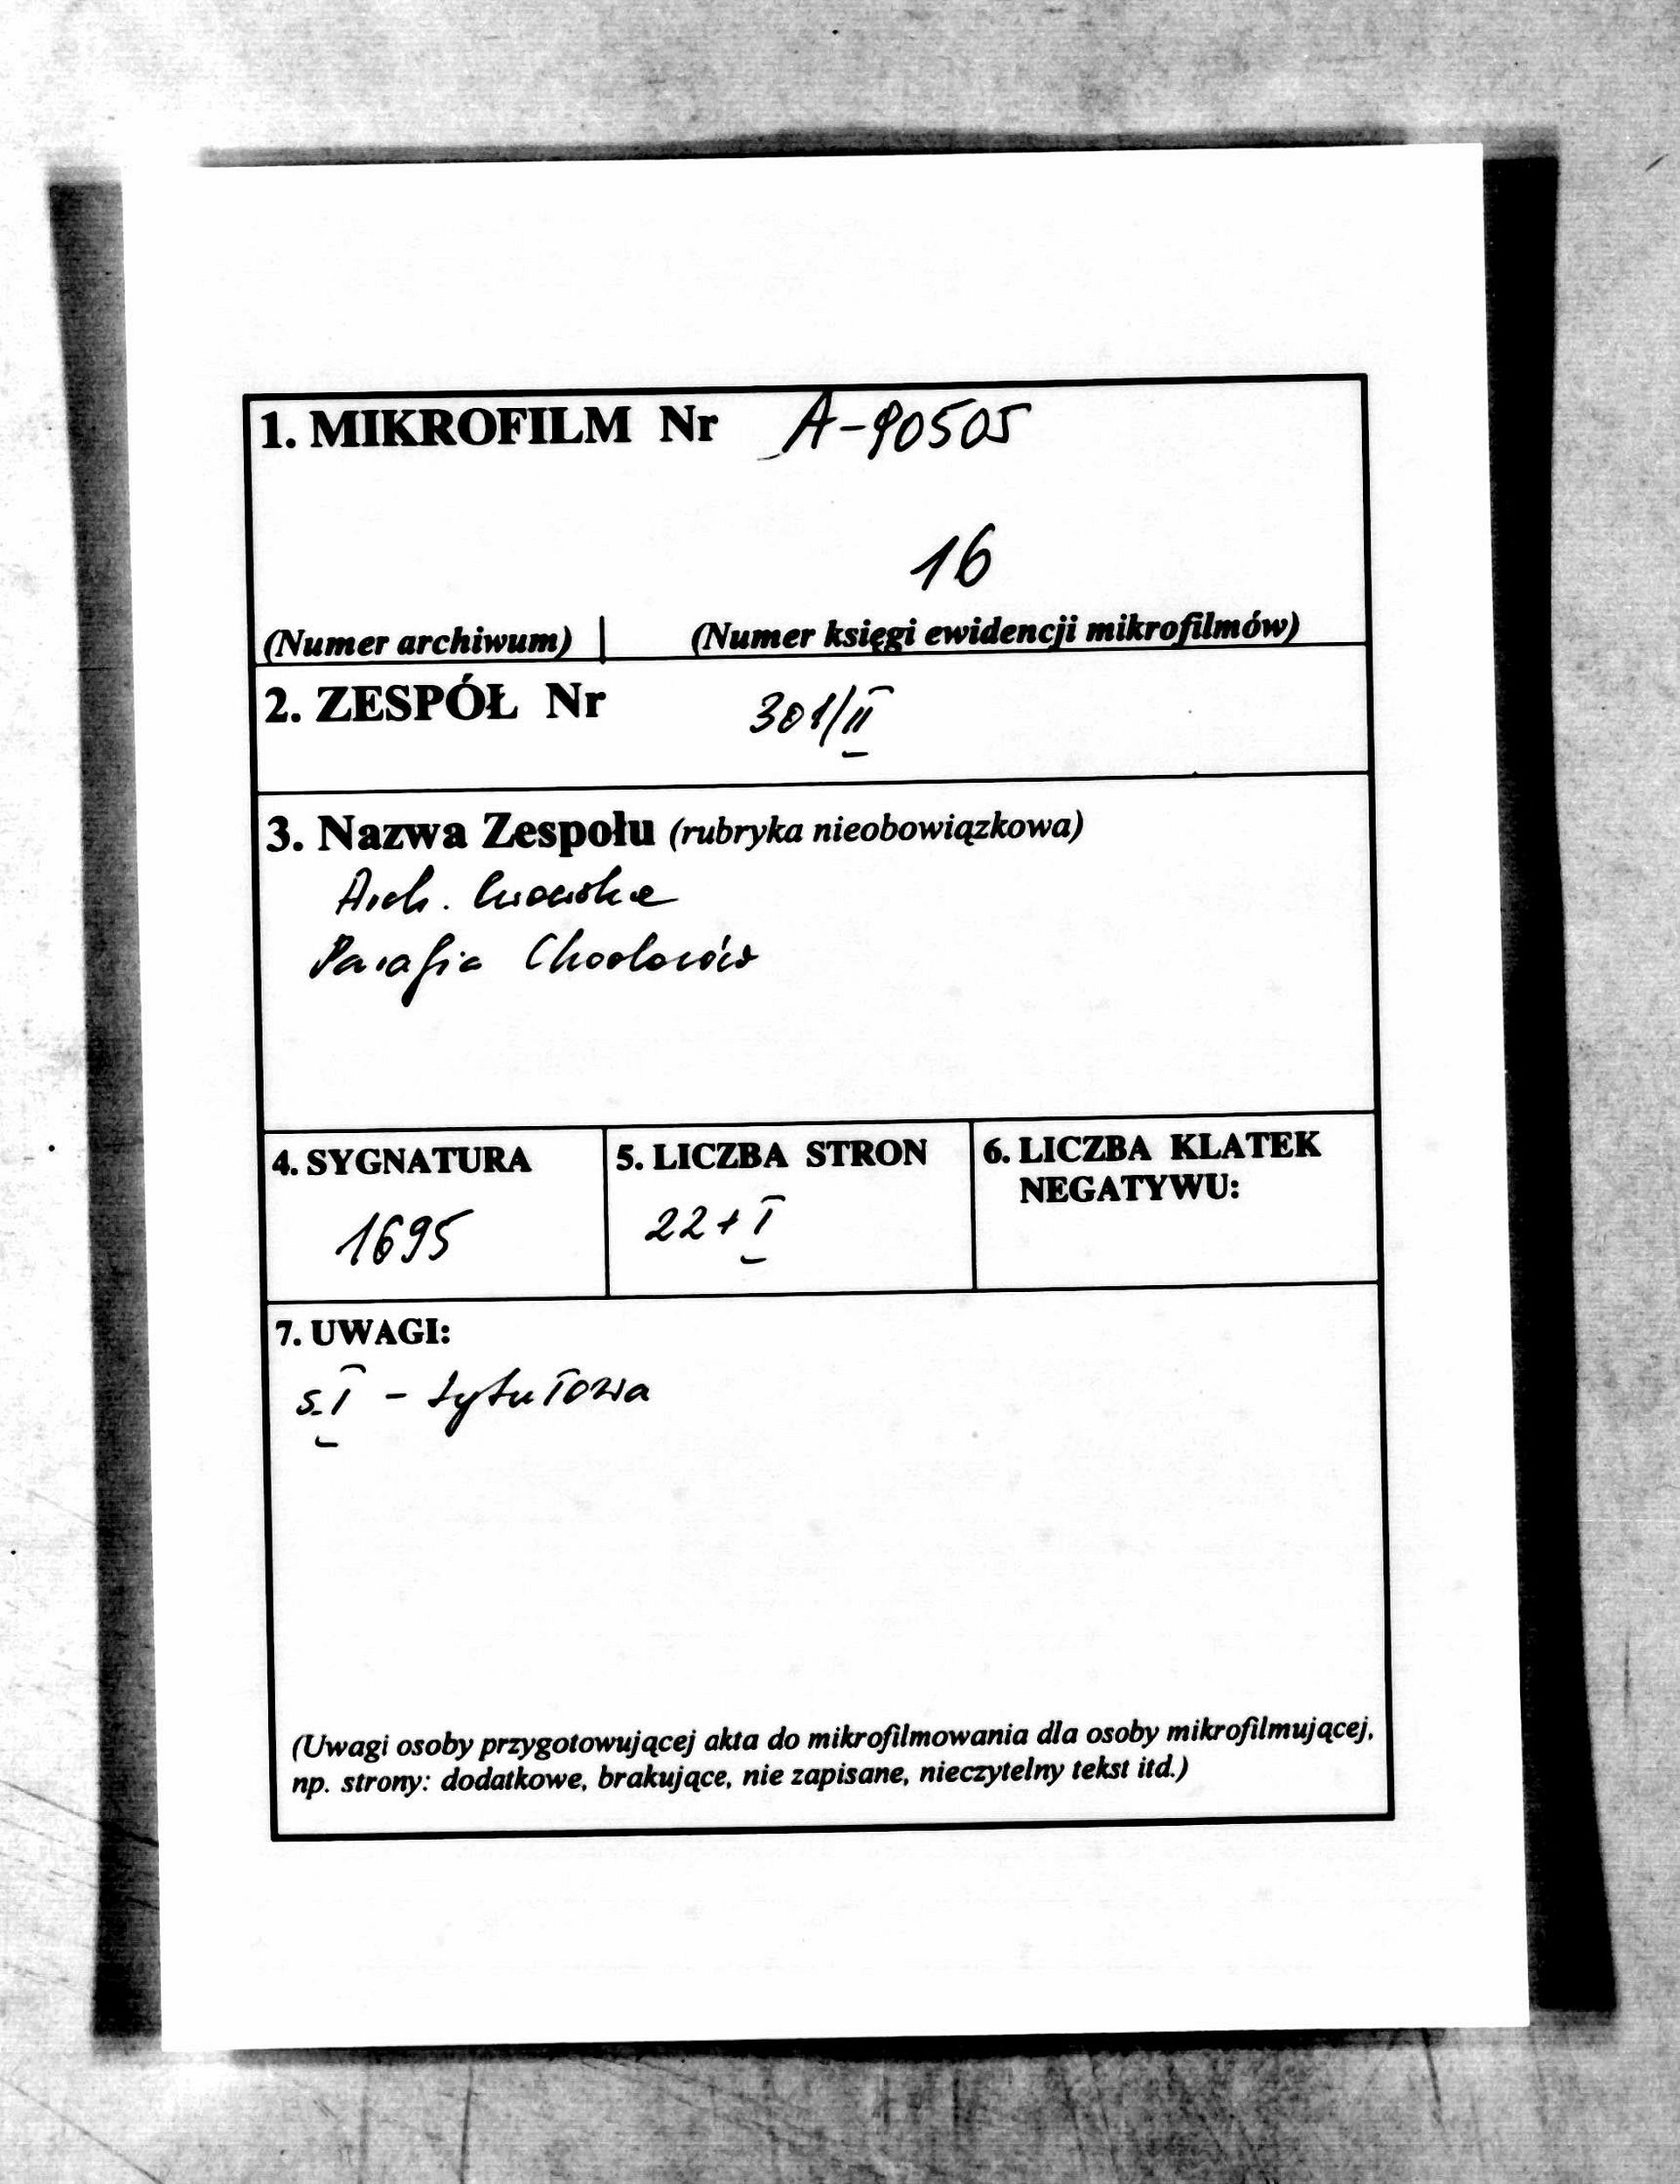 1. MIKROFILM Nr A-90505
16
(Numer archiwum) | (Numer księgi ewidencji mikrofilmów)
2. ZESPÓŁ Nr 301/II
3. Nazwa Zespołu (rubryka nieobowiązkowa)
Arch. lwowska
Parafia Chodorów
4. SYGNATURA
1695
5. LICZBA STRON
22+I
6. LICZBA KLATEK
NEGATYWU:
7. UWAGI:
s.I - tytułowa
(Uwagi osoby przygotowującej akta do mikrofilmowania dla osoby mikrofilmującej,
np. strony: dodatkowe, brakujące, nie zapisane, nieczytelny tekst itd.)